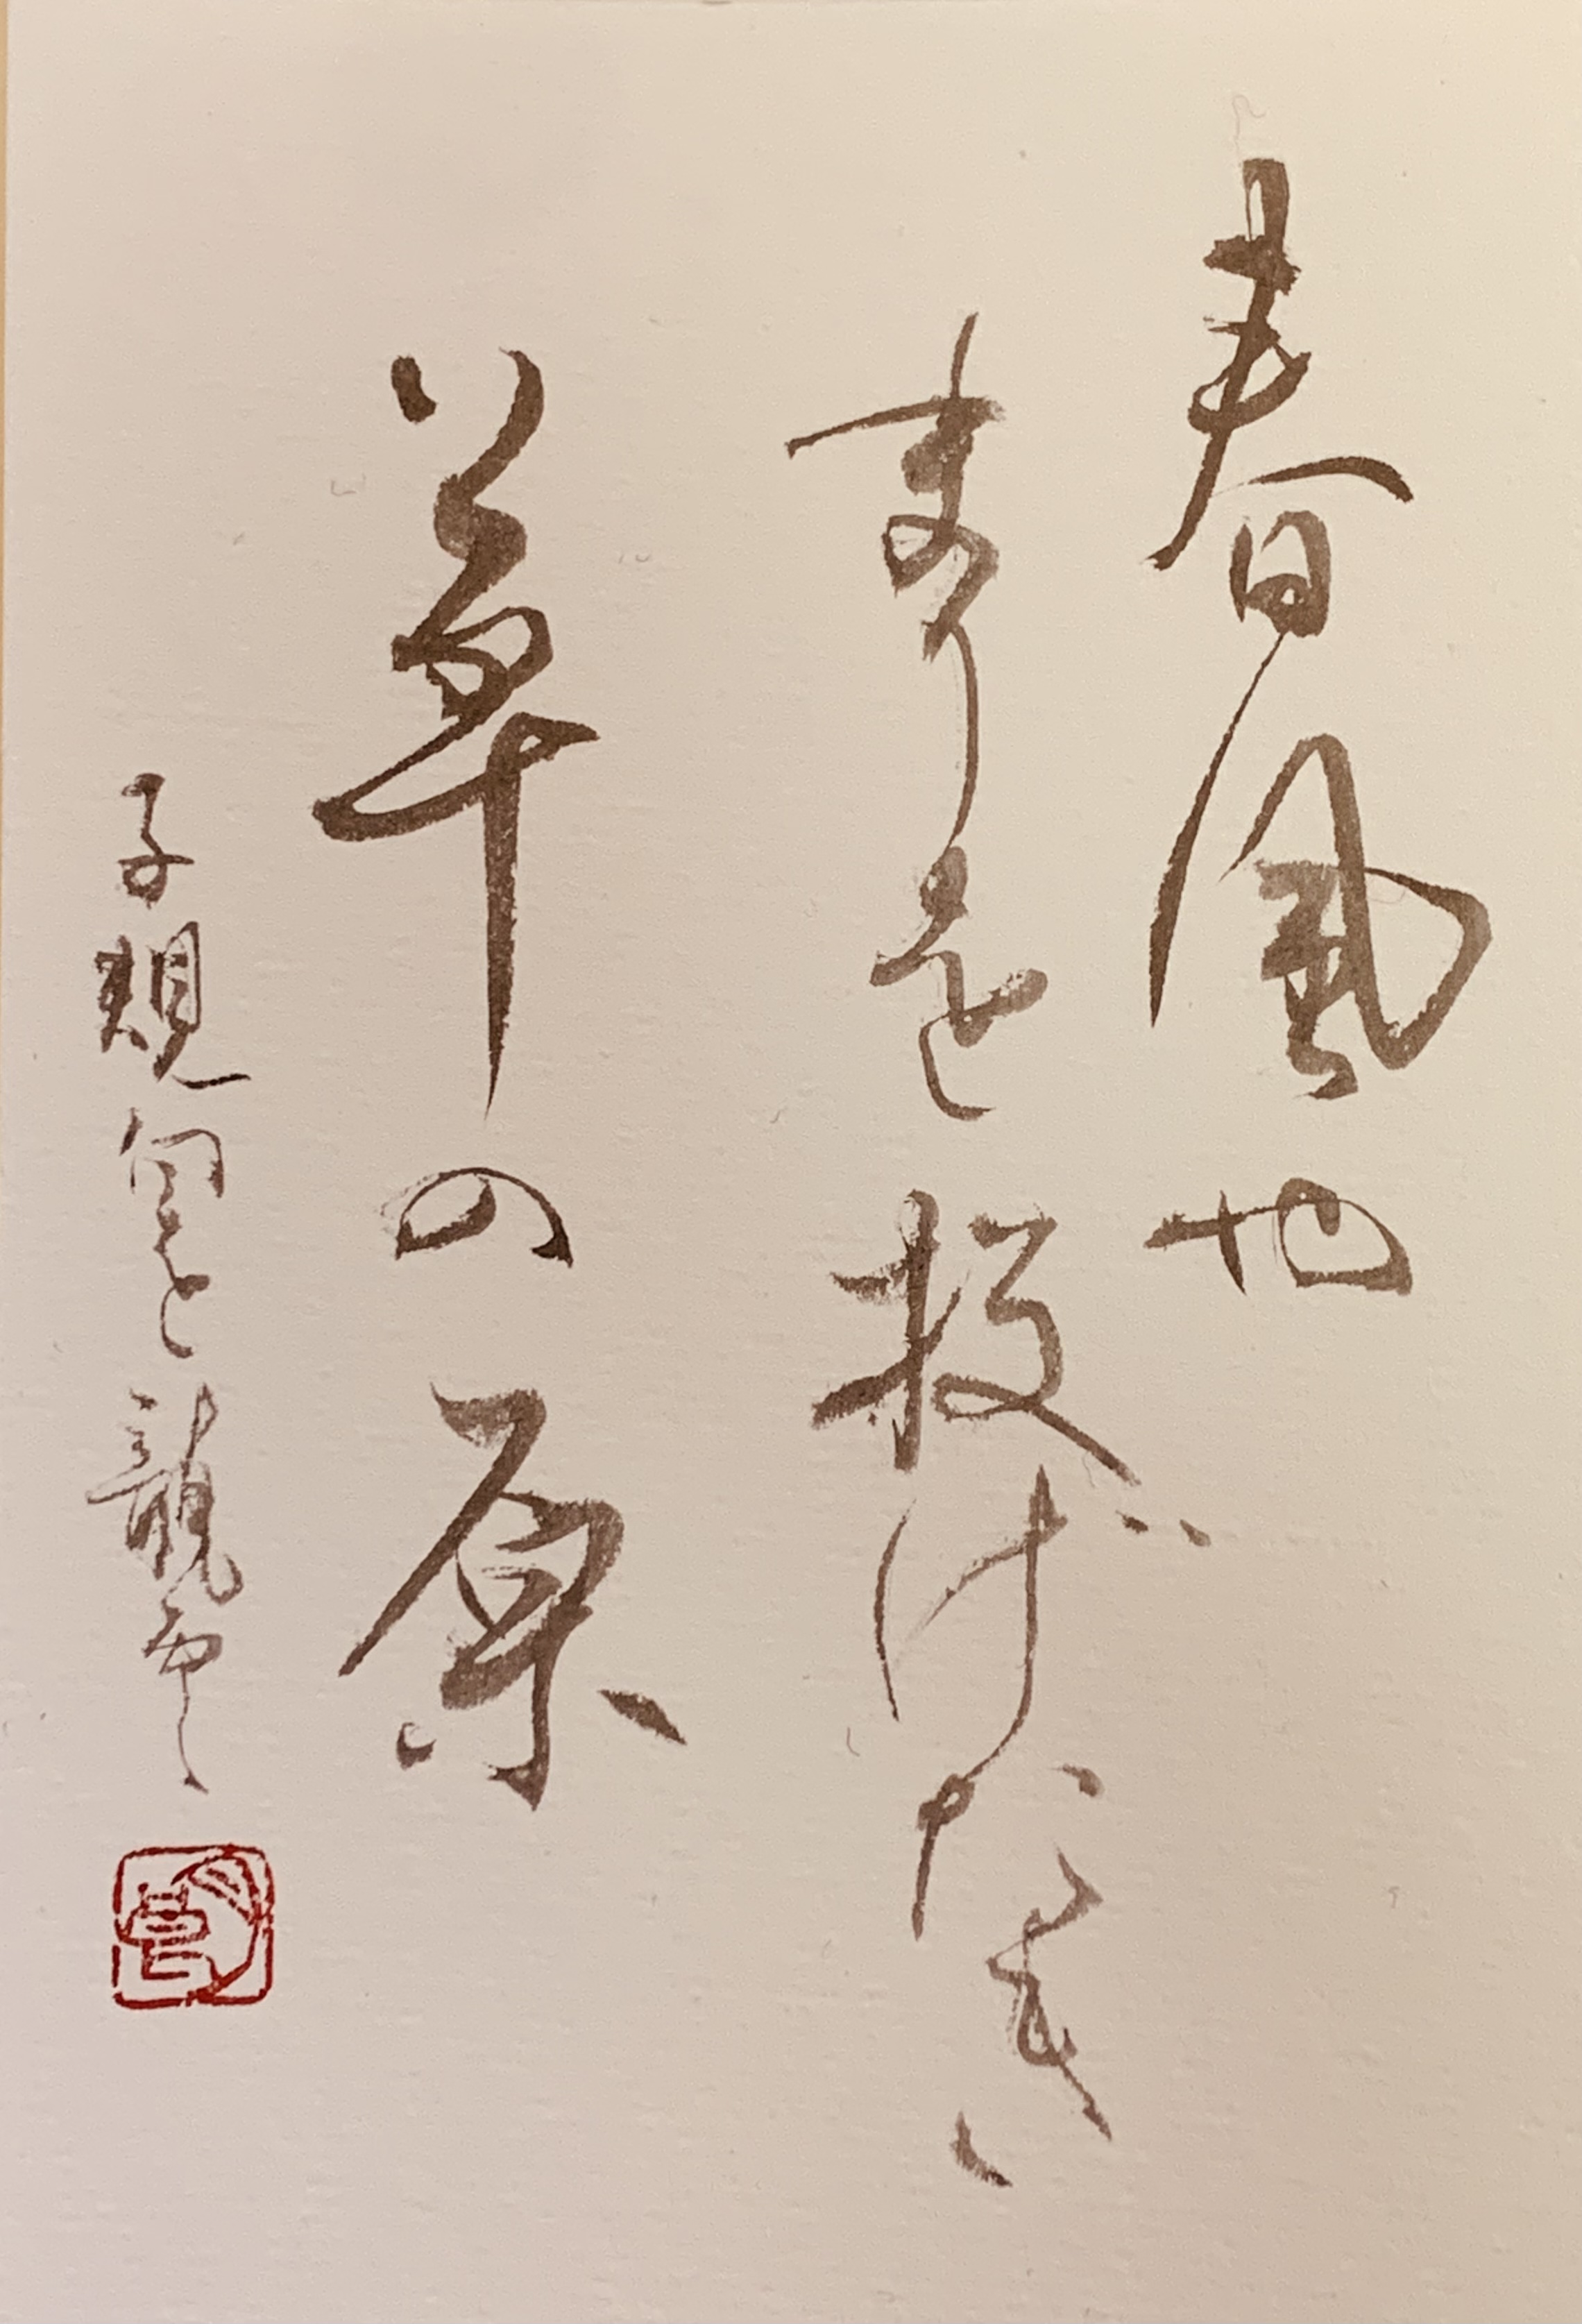 春風や
まりを投げたき
草の原
子規句を